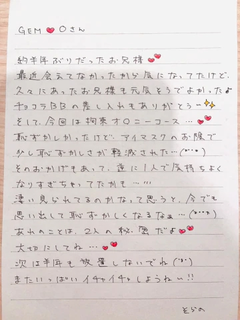 GEM❤Oさん
約半年ぶりだったお兄様❤
最近会えてなかったから気になってたけど、
久々にあったお兄様も元気そうでよかったよ
チョコラBBの差し入れもありがとうー✨
そして、今回は拘束オ○ニーコース…❤
恥ずかしかったけど アイマスクのお陰で
少し恥ずかしさが軽減された…
そのおかげもあって、逆に1人で気持ちよく
なりすぎちゃってたかも…
凄い見られてるのかなって思うと、今でも
思い出して恥ずかしくなるなぁー
あれのことは、2人の秘密だよ❤
大切にしてね…❤
次は半年も放置しないでね
またいっぱいイチャイチャしようねぃ!!